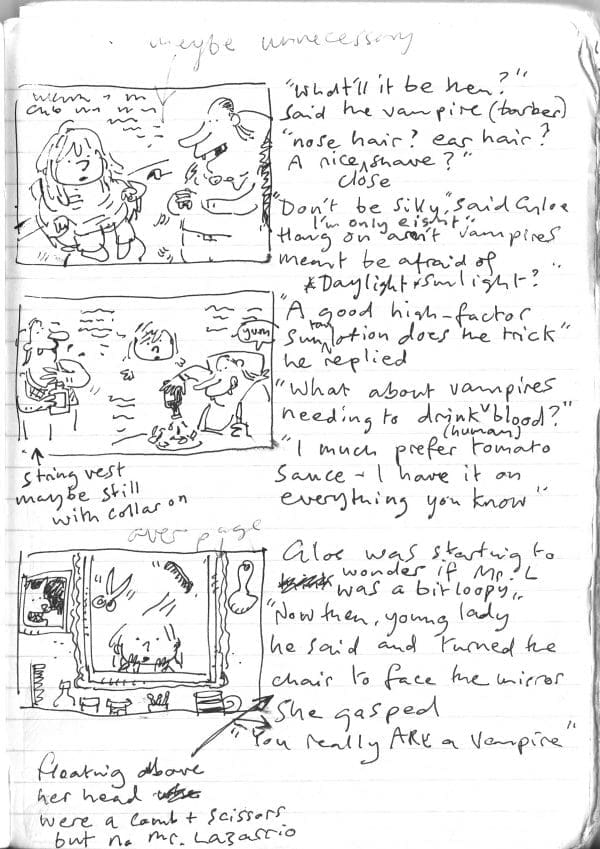 maybe unnecessary
"What'll it be then?"
said the vampire (barber)
"nose hair? ear hair?
A nice close shave?"
"Don't be silly," said Chloe
I'm only eight"
Hang on "aren't vampires
meant be afraid of
Daylight + sunlight?"
"A good high-factor
sun tan lotion does the trick"
he replied
"What about vampires
needing to drink (human) blood?"
"I much prefer tomato
sauce - I have it on
everything you know"
yum
string vest
maybe still
with collar on
over page
Cloe was starting to
wonder if Mr. L
was a bit loopy,,
"Now then, young lady
he said and turned the
chair to face the mirror
She gasped
"You really ARE a vampire"
floating above
her head
were a comb + scissors
but no Mr. Lazarrio